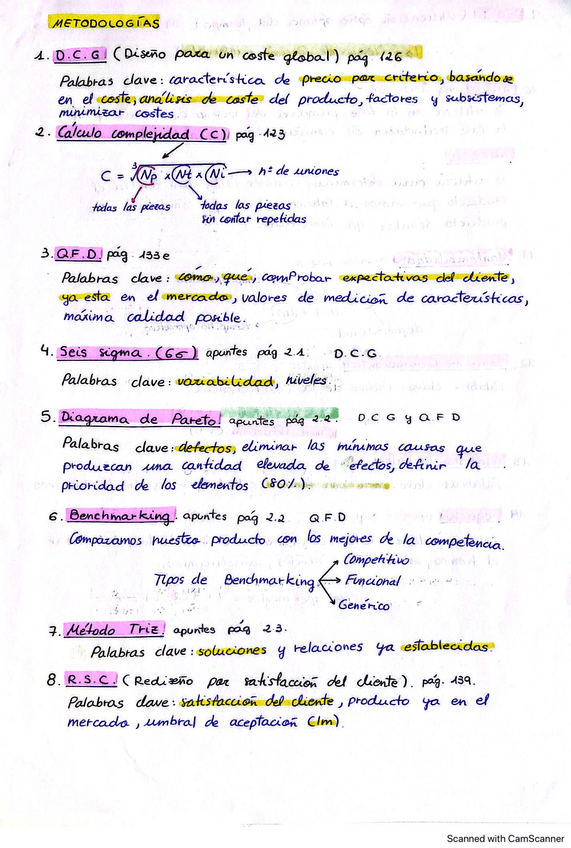 METODOLOGÍAS
1. D.C.G (Diseño para un coste global) pág 126
Palabras clave: característica de precio por criterio, basándose
en el coste, análisis de coste del producto, factores y subsistemas,
minimizar costes.
2. Cálculo complejidad (C) pág. 123
C = ³√(Np x Nt x Ni) → nº de uniones
todas las piezas
todas las piezas
sin contar repetidas
3. Q.F.D. pág. 133 e
Palabras clave: como, qué, comprobar expectativas del cliente,
ya esta en el mercado, valores de medición de características,
máxima calidad posible.
4. Seis sigma. (6σ) apuntes pág 2.1. D.C.G.
Palabras clave: variabilidad, niveles.
5. Diagrama de Pareto. apuntes pág 2.2. D C G y Q F D
Palabras clave: defectos, eliminar las mínimas causas que
produzcan una cantidad elevada de efectos, definir la
prioridad de los elementos (80%).
6. Benchmarking. apuntes pág 2.2 Q.F.D
Comparamos nuestro producto con los mejores de la competencia.
Competitivo
Tipos de Benchmarking → Funcional
Genérico
7. Método Triz. apuntes pág 2.3.
Palabras clave: soluciones y relaciones ya establecidas.
8. R.S.C. (Rediseño por satisfacción del cliente). pág. 139.
Palabras clave: satisfacción del cliente, producto ya en el
mercado, umbral de aceptación (Im).
Scanned with CamScanner